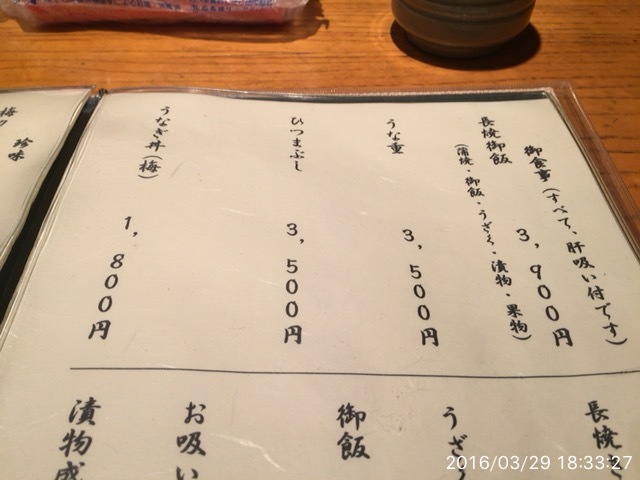 御食事（すべて、肝吸い付です）
長焼御飯
3,900円
（蒲焼・御飯・うざく・漬物・果物）
うな重
3,500円
ひつまぶし
3,500円
うなぎ丼（梅）
1,800円
長焼き
うざく
御飯
お吸い
漬物盛
珍味
2016/03/29 18:33:27